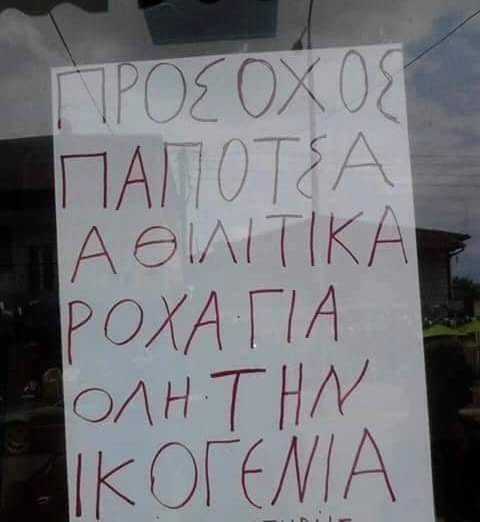 ΠΡΟΣΟΧΟΣ
ΠΑΠΟΤΣΑ
ΑΘΙΛΙΤΙΚΑ
ΡΟΧΑ·ΓΙΑ
ΟΛΗ·ΤΗΝ
ΙΚΟΓΕΝΙΑ